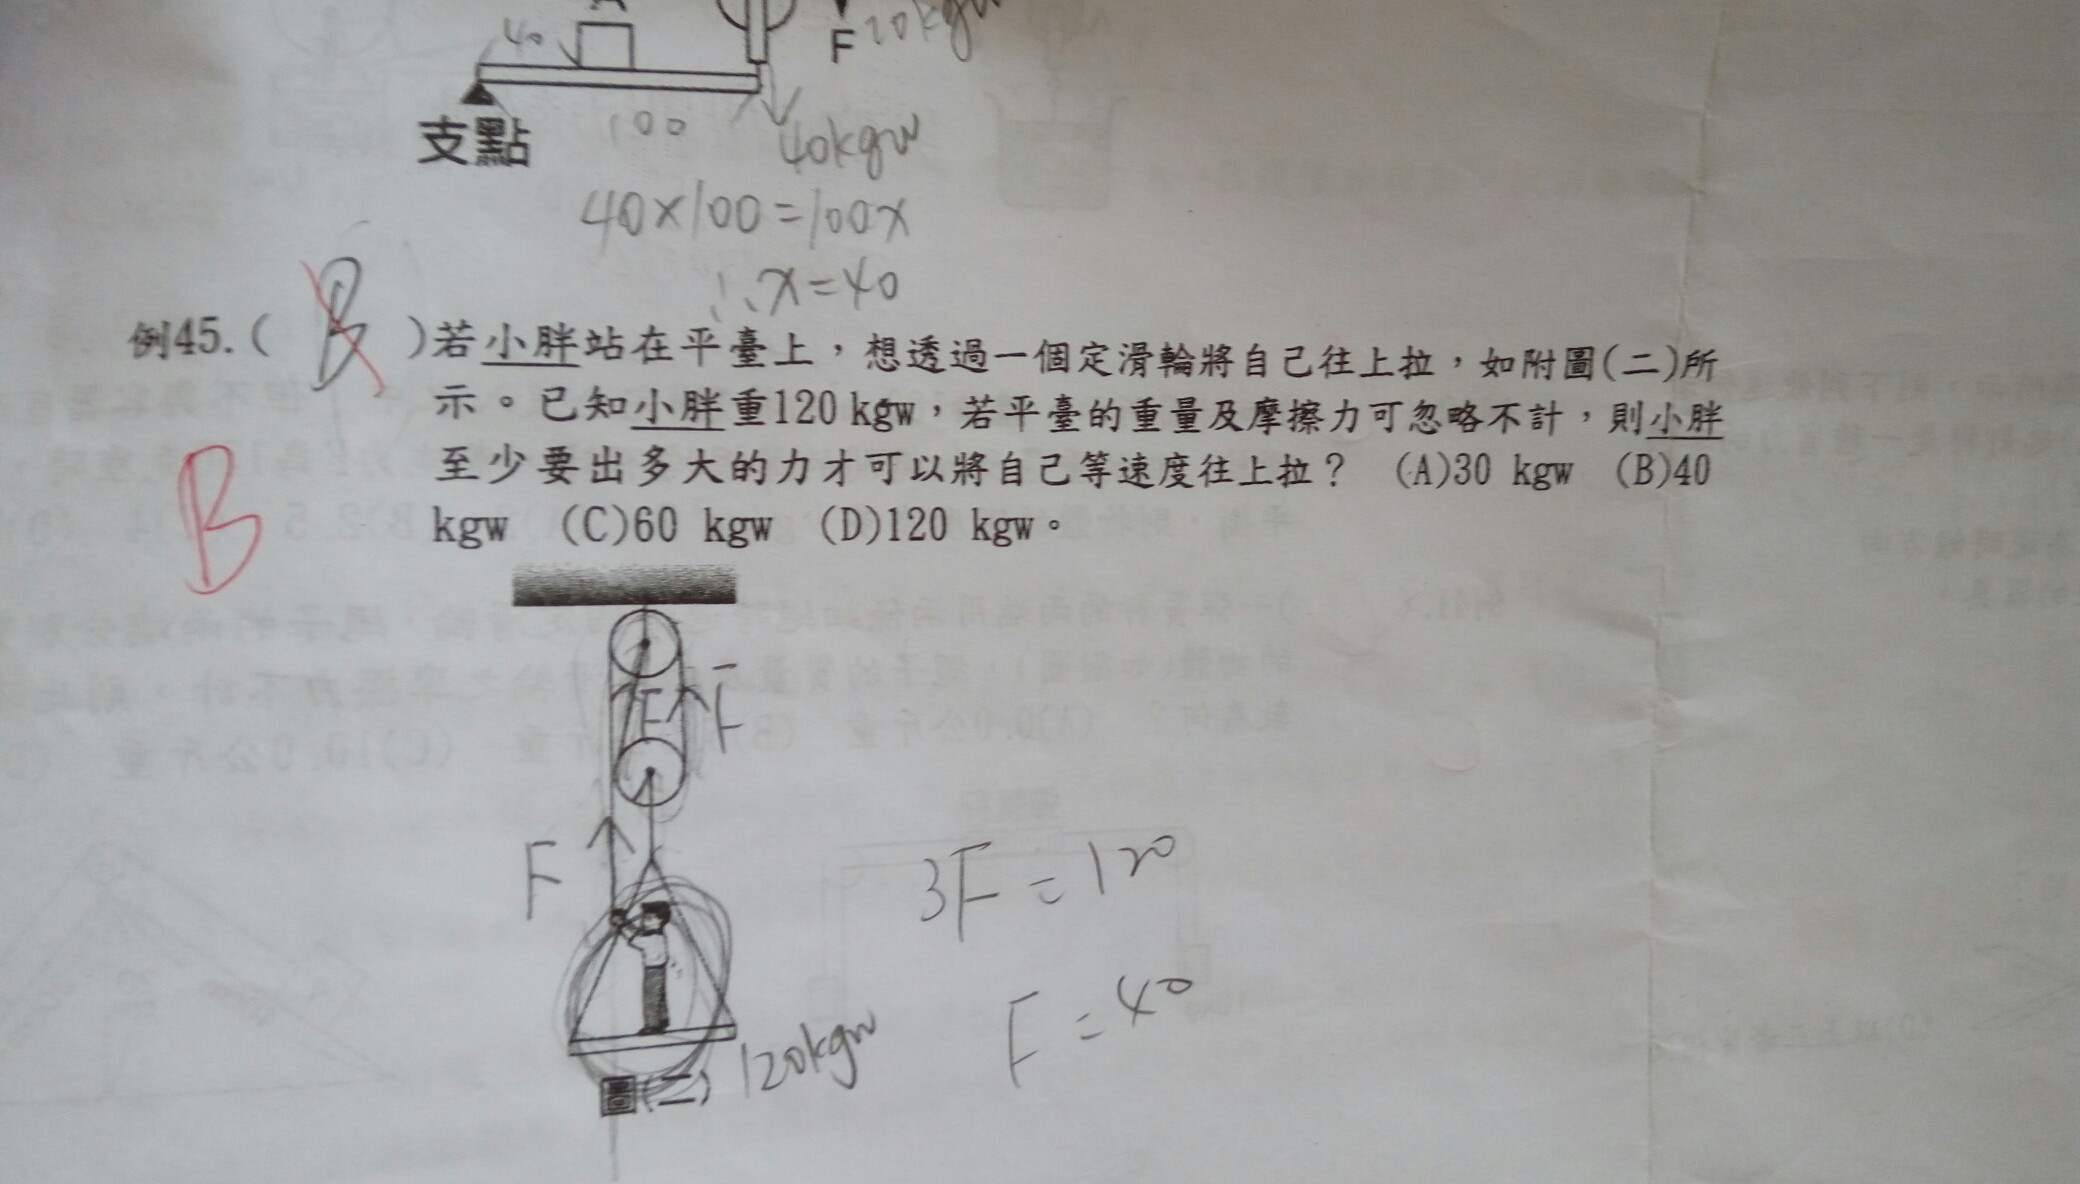 40
F 20kgw
100
支點
40kgw
40×100=100x
∴x=40
例45.( B )若小胖站在平臺上，想透過一個定滑輪將自己往上拉，如附圖(二)所
示。已知小胖重120 kgw，若平臺的重量及摩擦力可忽略不計，則小胖
至少要出多大的力才可以將自己等速度往上拉？ (A)30 kgw (B)40
kgw (C)60 kgw (D)120 kgw。
B
F F
F
3F=120
F=40
120kgw
圖(二)